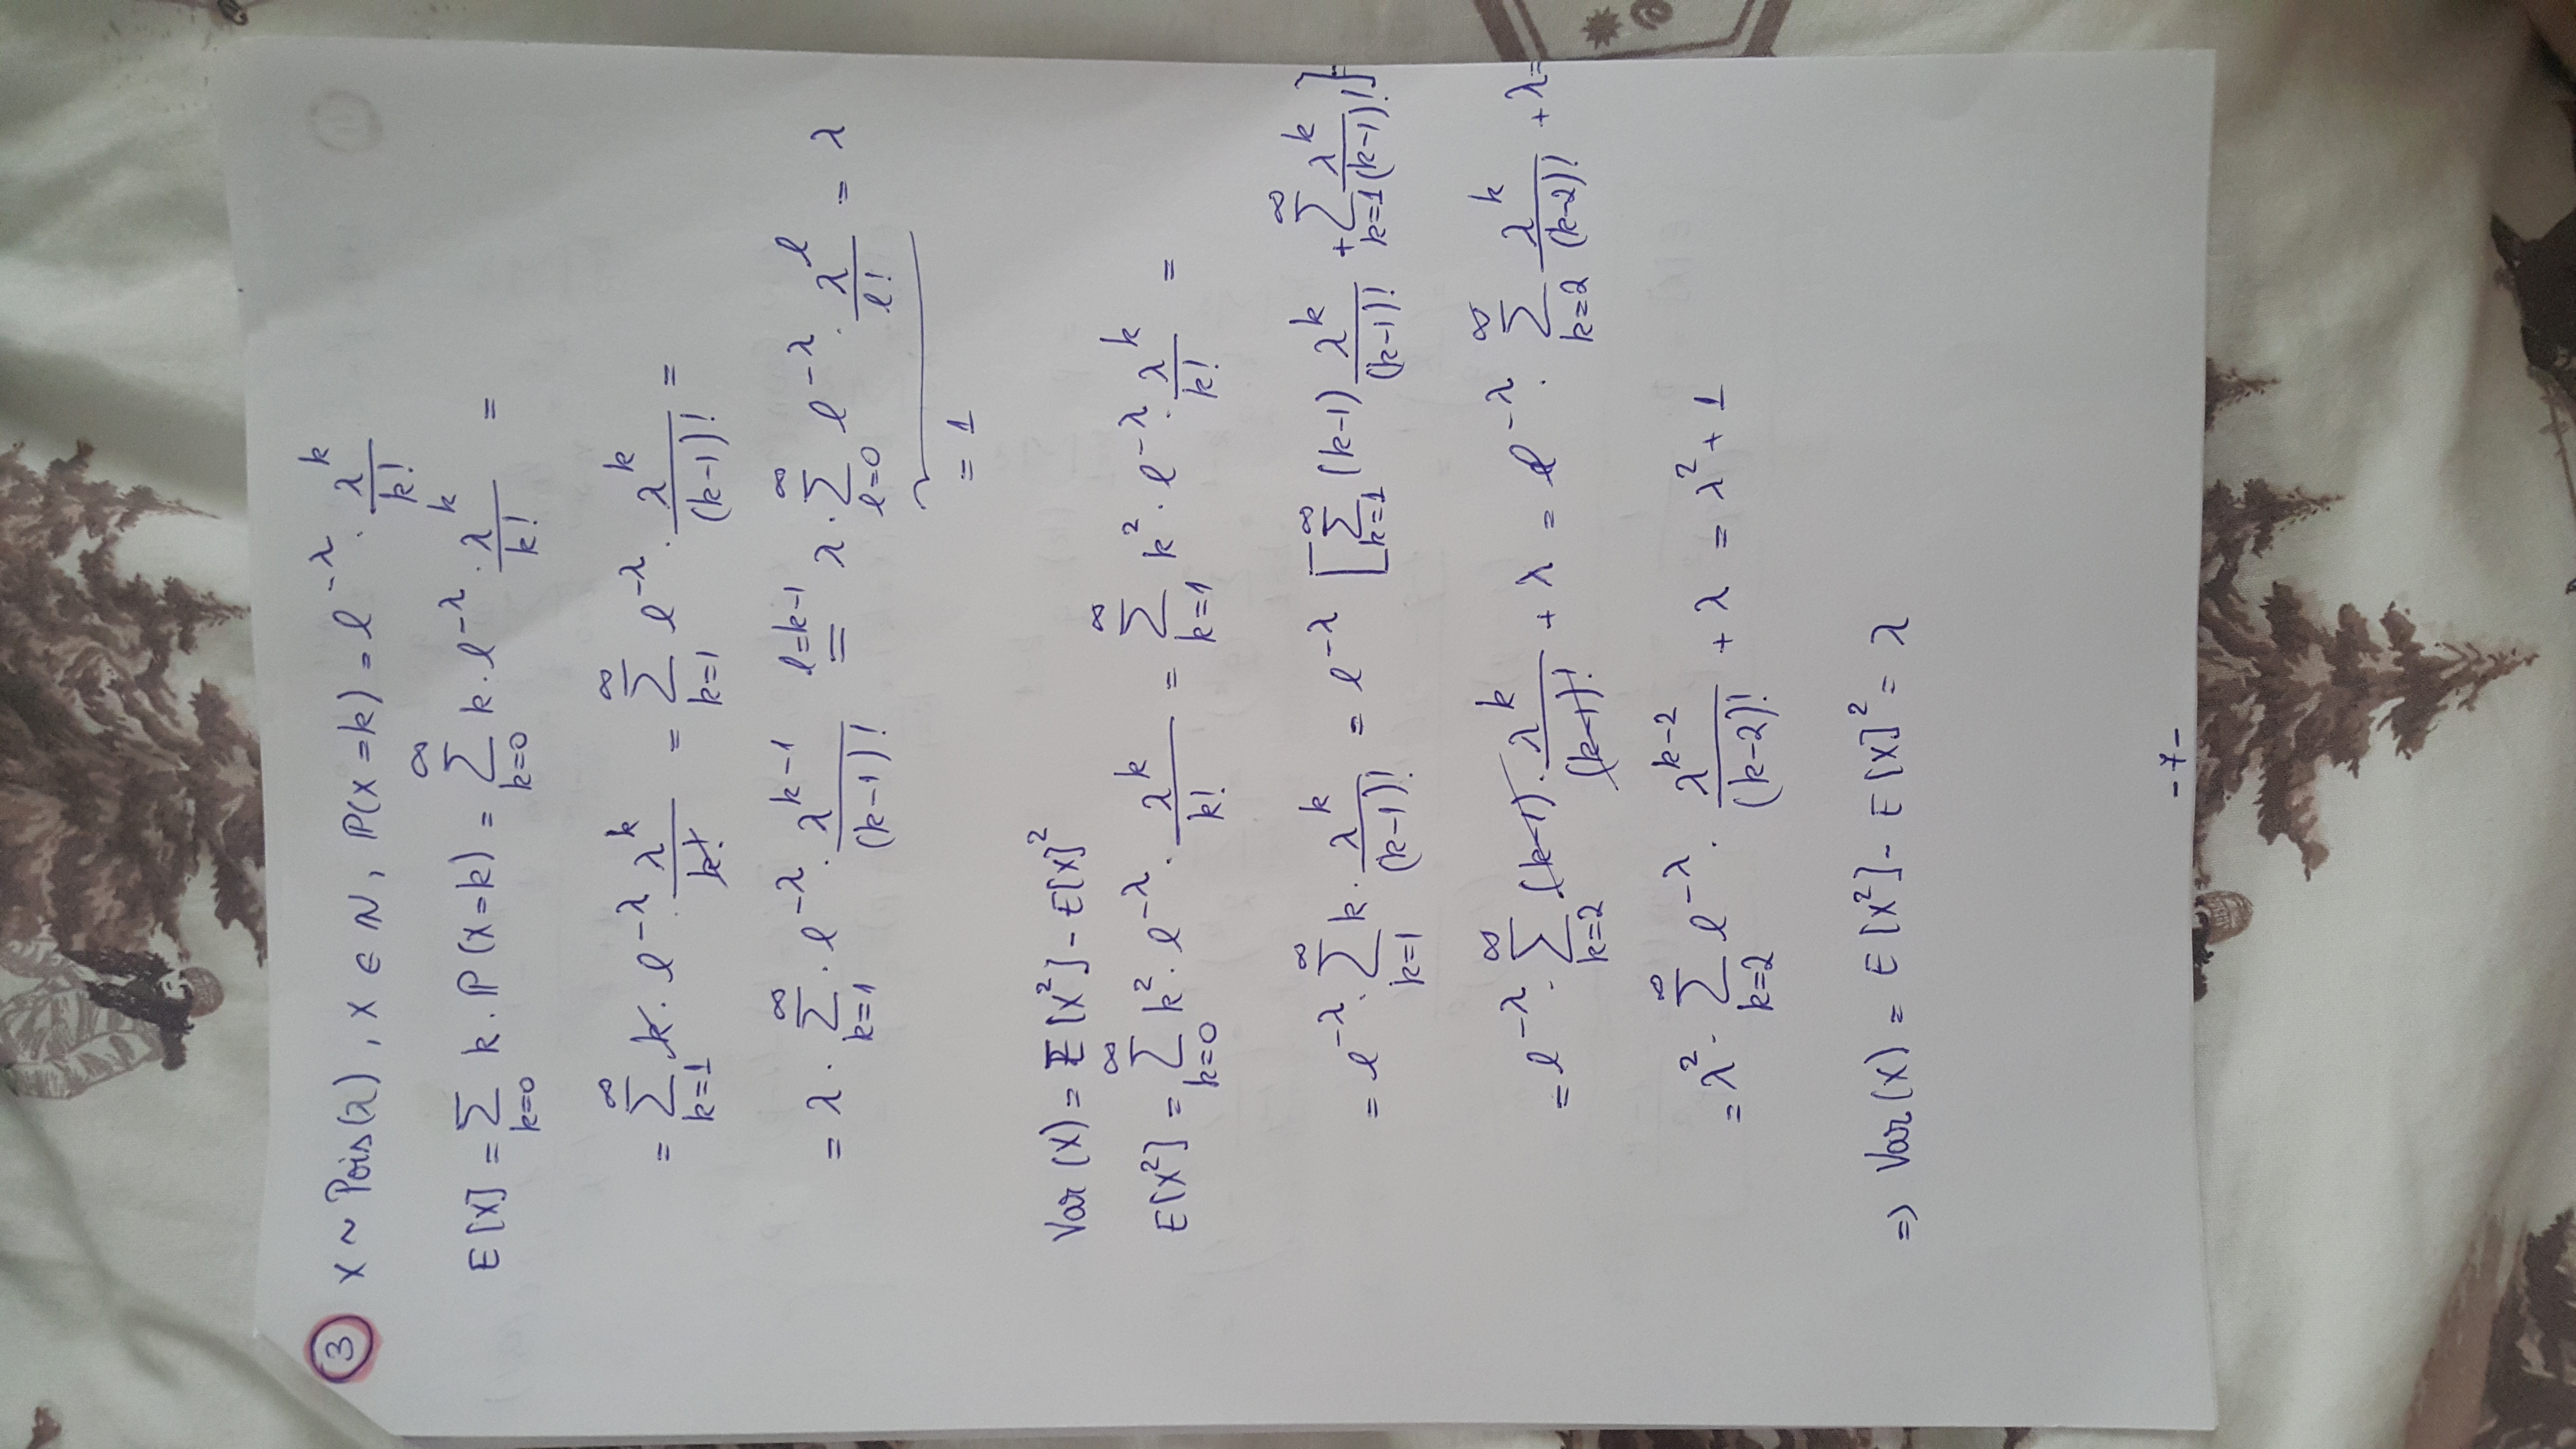 ③ X ~ Pois(λ), X ∈ ℕ, ℙ(X=k) = e^{-λ} · λ^k / k!
E[X] = ∑_{k=0} k · ℙ(X=k) = ∑_{k=0}^{∞} k · e^{-λ} · λ^k / k! =
= ∑_{k=1}^{∞} k · e^{-λ} · λ^k / k! = ∑_{k=1}^{∞} e^{-λ} · λ^k / (k-1)! =
= λ · ∑_{k=1}^{∞} · e^{-λ} · λ^{k-1} / (k-1)! =^{l=k-1} λ · ∑_{l=0}^{∞} e^{-λ} · λ^l / l! = λ
= 1
Var(X) = E[X²] - E[X]²
E[X²] = ∑_{k=0}^{∞} k² · e^{-λ} · λ^k / k! = ∑_{k=1}^{∞} k² · e^{-λ} · λ^k / k! =
= e^{-λ} · ∑_{k=1}^{∞} k · λ^k / (k-1)! = e^{-λ} [∑_{k=1}^{∞} (k-1) λ^k / (k-1)! + ∑_{k=1}^{∞} λ^k / (k-1)!] =
= e^{-λ} · ∑_{k=2}^{∞} (k-1) · λ^k / (k-1)! + λ = e^{-λ} · ∑_{k=2}^{∞} λ^k / (k-2)! + λ =
= λ² · ∑_{k=2}^{∞} e^{-λ} · λ^{k-2} / (k-2)! + λ = λ² + 1
⇒ Var(X) = E[X²] - E[X]² = λ
- 7 -